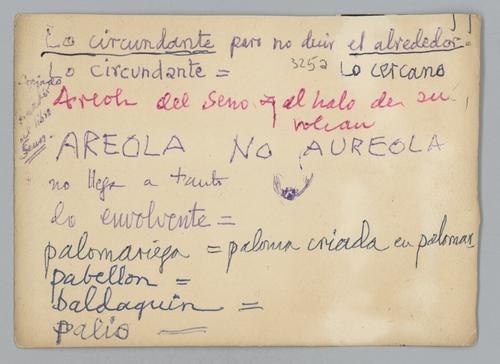 Lo circundante pero no decir el alrededor.
3252
Lo circundante = Lo cercano
Areola del seno = el halo de su
volcan
AREOLA NO AUREOLA
no llega a tanto
lo envolvente =
palomariega = paloma criada en palomar
pabellon =
baldaquin =
palio —